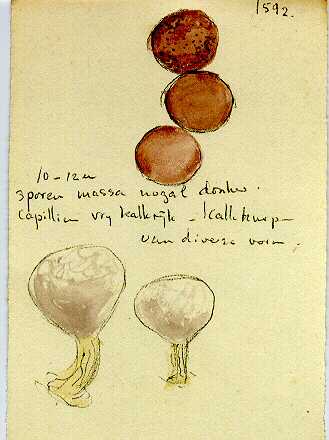 1592.
10-12 u
sporen massa nogal donker.
Capillitium vry kalkrijk - kalkknoop
van diverse vorm.